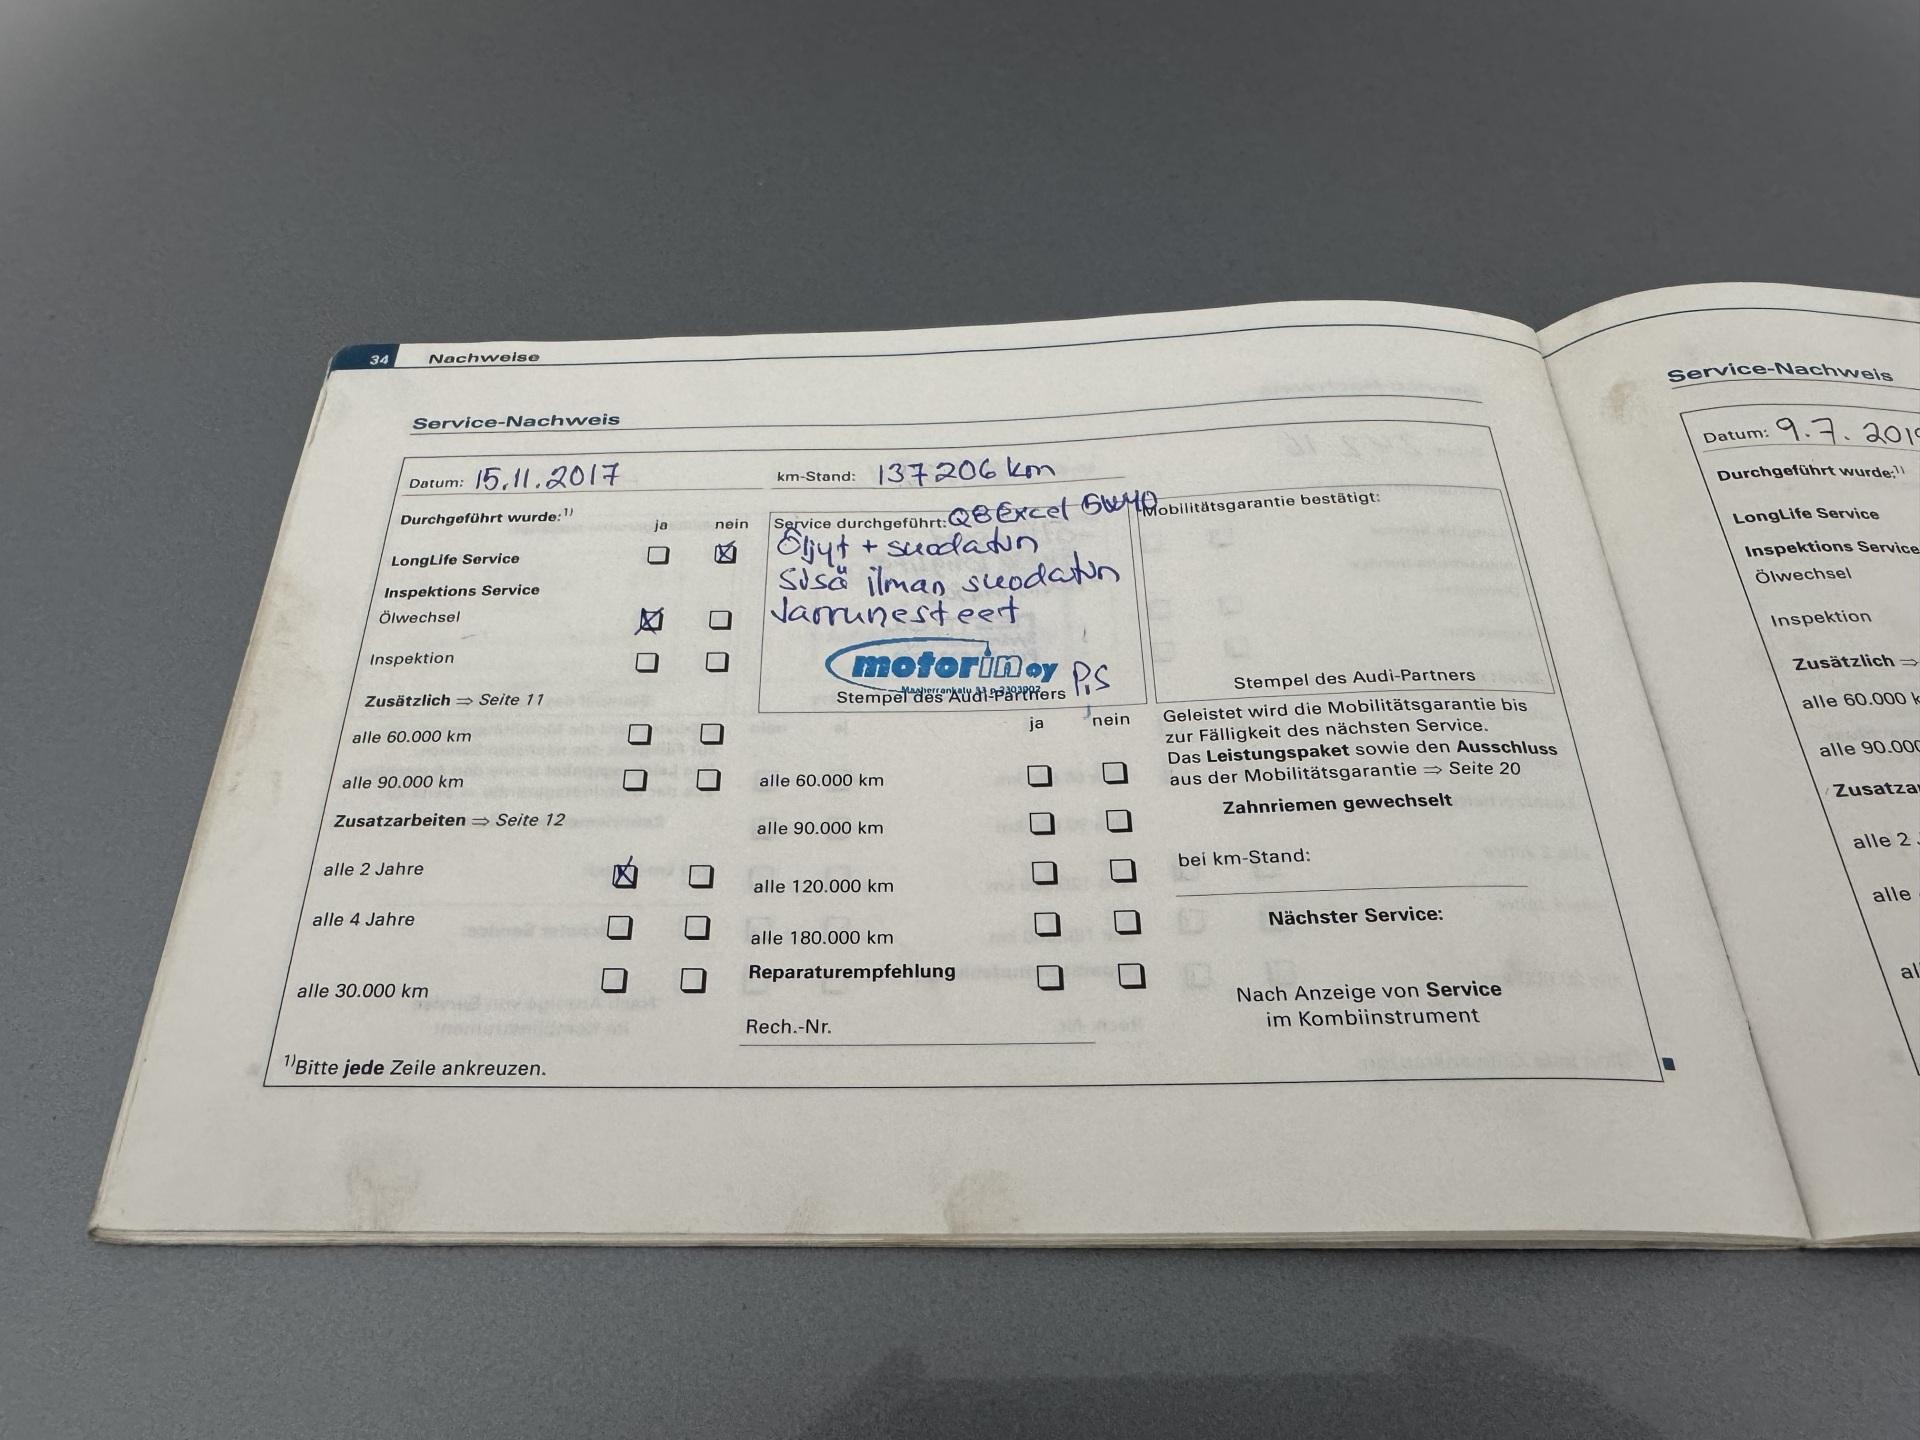 34 Nachweise
Service-Nachweis
Datum: 15.11.2017 km-Stand: 137206 km
Durchgeführt wurde:1) ja nein
LongLife Service
Inspektions Service
Ölwechsel
Inspektion
Zusätzlich ⇒ Seite 11
alle 60.000 km
alle 90.000 km
Zusatzarbeiten ⇒ Seite 12
alle 2 Jahre
alle 4 Jahre
alle 30.000 km
1)Bitte jede Zeile ankreuzen.
Service durchgeführt: Q8 Excel 5W40
Öljyt + suodatin
Sisä ilman suodatin
Jarrunesteet
motorin oy P.S
Stempel des Audi-Partners
ja nein
alle 60.000 km
alle 90.000 km
alle 120.000 km
alle 180.000 km
Reparaturempfehlung
Rech.-Nr.
Mobilitätsgarantie bestätigt:
Stempel des Audi-Partners
Geleistet wird die Mobilitätsgarantie bis
zur Fälligkeit des nächsten Service.
Das Leistungspaket sowie den Ausschluss
aus der Mobilitätsgarantie ⇒ Seite 20
Zahnriemen gewechselt
bei km-Stand:
Nächster Service:
Nach Anzeige von Service
im Kombiinstrument
Service-Nachweis
Datum: 9.7.2019
Durchgeführt wurde:1)
LongLife Service
Inspektions Service
Ölwechsel
Inspektion
Zusätzlich ⇒
alle 60.000 k
alle 90.000
Zusatza
alle 2 J
alle
al